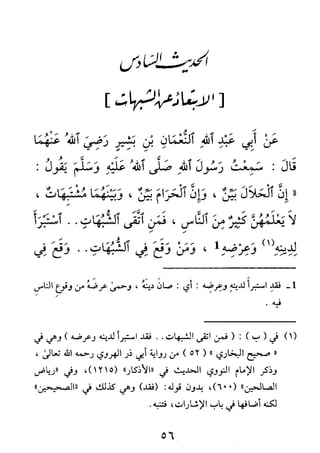 الحديث السادس
[ الابتعاد عن الشبهات ]
عَنْ أَبِي عَبْدِ اللهِ النُّعْمَانِ بْنِ بَشِيرٍ رَضِيَ اللهُ عَنْهُمَا
قَالَ : سَمِعْتُ رَسُولَ اللهِ صَلَّى اللهُ عَلَيْهِ وَسَلَّمَ يَقُولُ :
« إِنَّ الْحَلَالَ بَيِّنٌ ، وَإِنَّ الْحَرَامَ بَيِّنٌ ، وَبَيْنَهُمَا مُشْتَبِهَاتٌ ،
لَا يَعْلَمُهُنَّ كَثِيرٌ مِنَ النَّاسِ ، فَمَنِ اتَّقَى الشُّبُهَاتِ .. اسْتَبْرَأَ
لِدِينِهِ (١) وَعِرْضِهِ 1 ، وَمَنْ وَقَعَ فِي الشُّبُهَاتِ .. وَقَعَ فِي
1 - فقد استبرأ لدينه وعرضه : أي : صان دينَهُ ، وحمىٰ عرضَهُ من وقوع الناس
فيه .
(١) في (ب) : ( فمن اتقى الشبهات .. فقد استبرأ لدينه وعرضه ) وهي في
« صحيح البخاري » (٥٢) من رواية أبي ذر الهروي رحمه الله تعالىٰ ،
وذكر الإمام النووي الحديث في «الأذكار» (١٢١٥)، وفي «رياض
الصالحين» (٦٠٠)، بدون قوله: (فقد) وهي كذلك في «الصحيحين»
لكنه أضافها في باب الإشارات، فتنبه.
٥٦